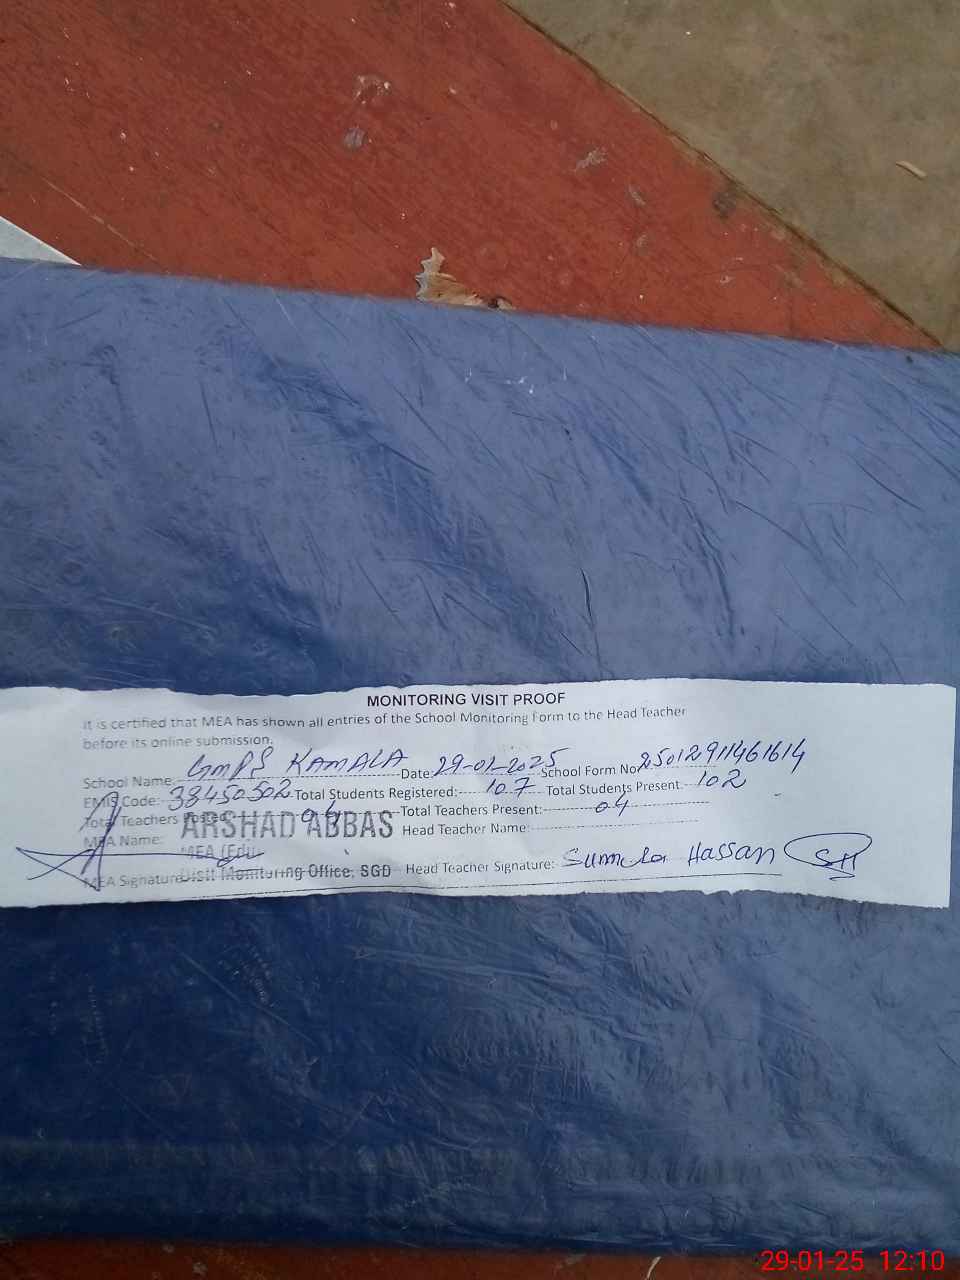 MONITORING VISIT PROOF
It is certified that MEA has shown all entries of the School Monitoring Form to the Head Teacher
before its online submission.
School Name: GMPS KAMALA Date: 29-01-2025 School Form No. 25012911461614
EMIS Code: 38450302 Total Students Registered: 107 Total Students Present: 102
Total Teachers Posted 04 Total Teachers Present: 04
MEA Name: ARSHAD ABBAS Head Teacher Name:
MEA (Edu)
MEA Signature Distt Monitoring Office, SGD Head Teacher Signature: Hassan SH
29-01-25 12:10